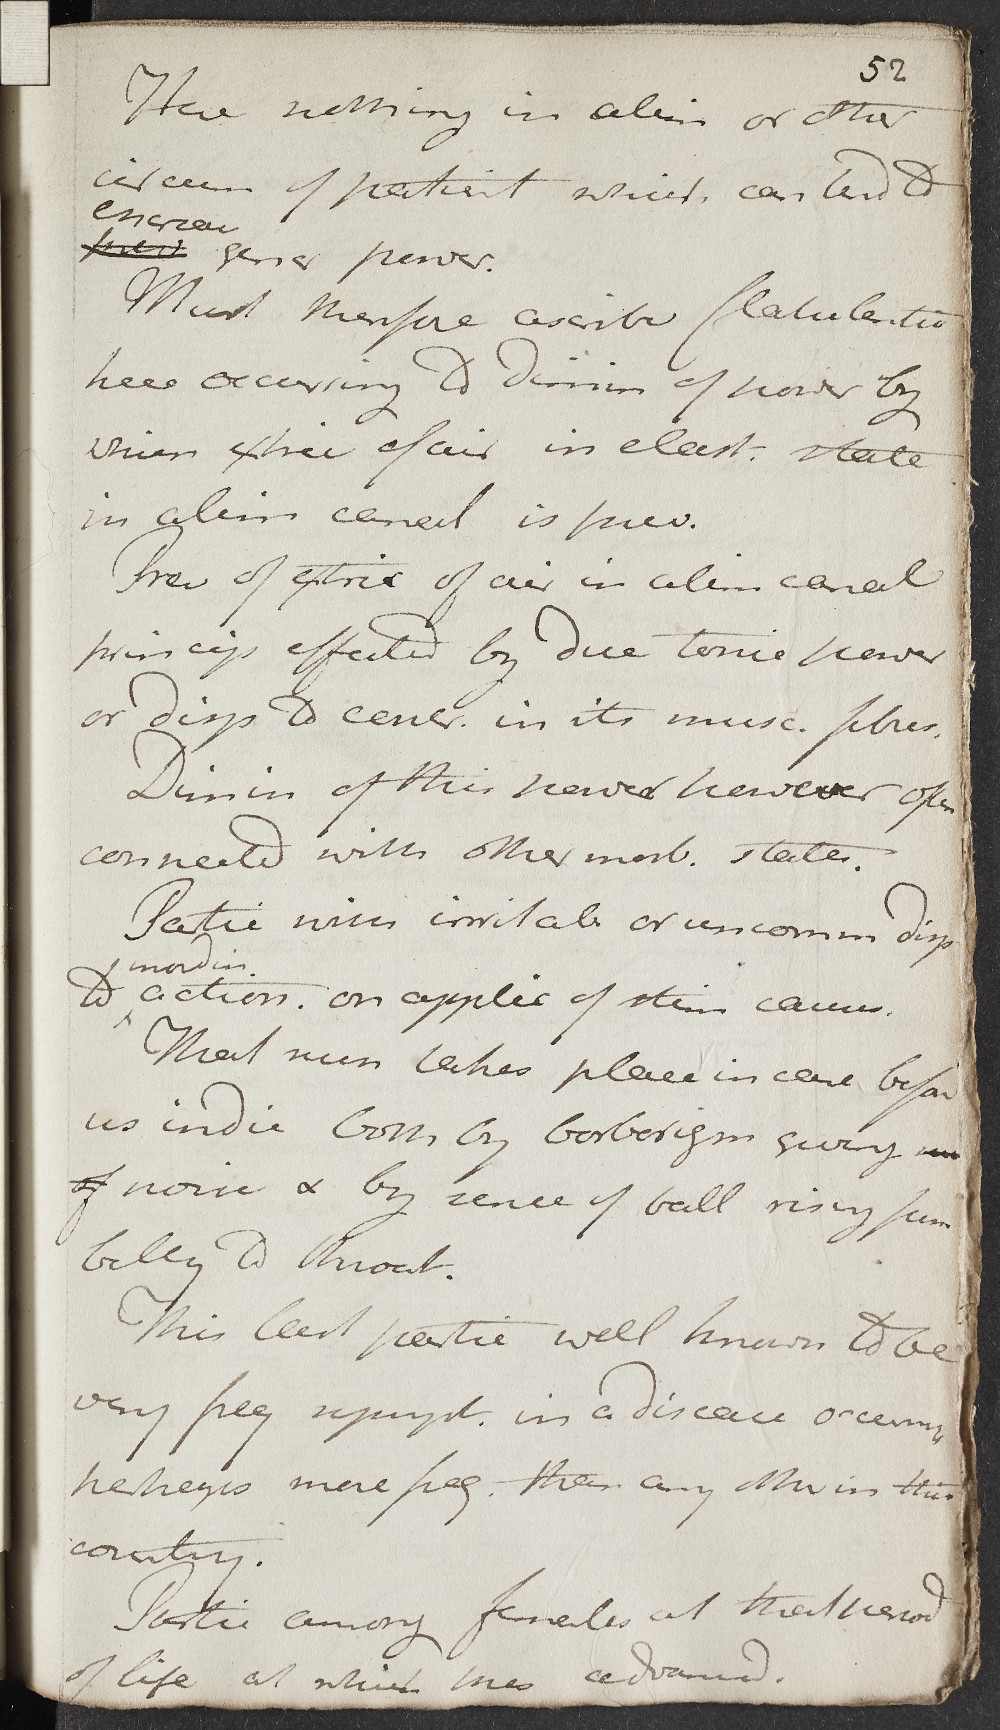 52
Here nothing in alim or other
circum of patient which can tend to
encrease
prev gener power.
Must therefore ascribe flatulentia
here occurring to dimin of power by
which extric of air in elast. state
in alim canal is prev.
Prev of extric of air in alim canal
princip effected by due tonic power
or disp to contr. in its musc. fibres.
Dimin of this power however often
connected with other morb. states.
Partic with irritab or uncomm disp
mordin.
to action. on applic of stim causes.
That such takes place in case before
us indic both by borborigm giving
of noise & by sense of ball rising from
belly to throat.
This last partic well known to be
very freq sympt. in a disease occurring
perhaps more freq. than any other in this
country.
Partic among females at that period
of life at which she's advanced.